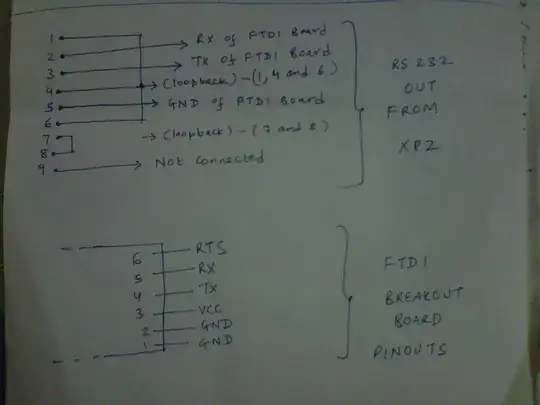 1
2 RX of FTDI Board
3 TX of FTDI Board
4 (loopback) - (1, 4 and 6)
5 GND of FTDI Board
6
7 (loopback) - (7 and 8)
8
9 Not connected
RS 232
OUT
FROM
XP2
6 RTS
5 RX
4 TX
3 VCC
2 GND
1 GND
FTDI
BREAKOUT
BOARD
PINOUTS